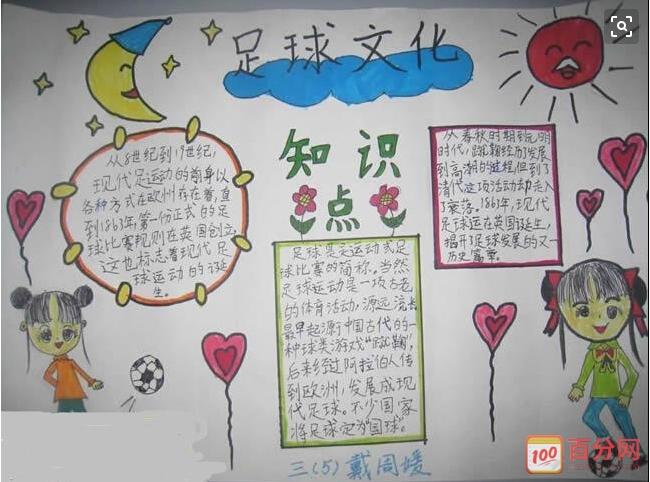 足球文化
从8世纪到19世纪,
现代足运动的前身以
各种方式在欧洲存在着,直
到1863年,第一份正式的足
球比赛规则在英国创立,
这也标志着现代足
球运动的诞
生。
知识
点
足球是足运动或足
球比赛的简称。当然
足球运动是一项古老
的体育活动,源远流长
最早起源于中国古代的一
种球类游戏“蹴鞠”,
后来经过阿拉伯人传
到欧洲,发展成现
代足球。不少国家
将足球定为“国球”。
从春秋时期到元明
时代,蹴鞠经历发展
到高潮的过程,但到了
清代这项活动却走入
了衰落。1863年,现代
足球运在英国诞生,
揭开足球发展的又一
历史篇章。
三(5)戴周媛
100
百分网